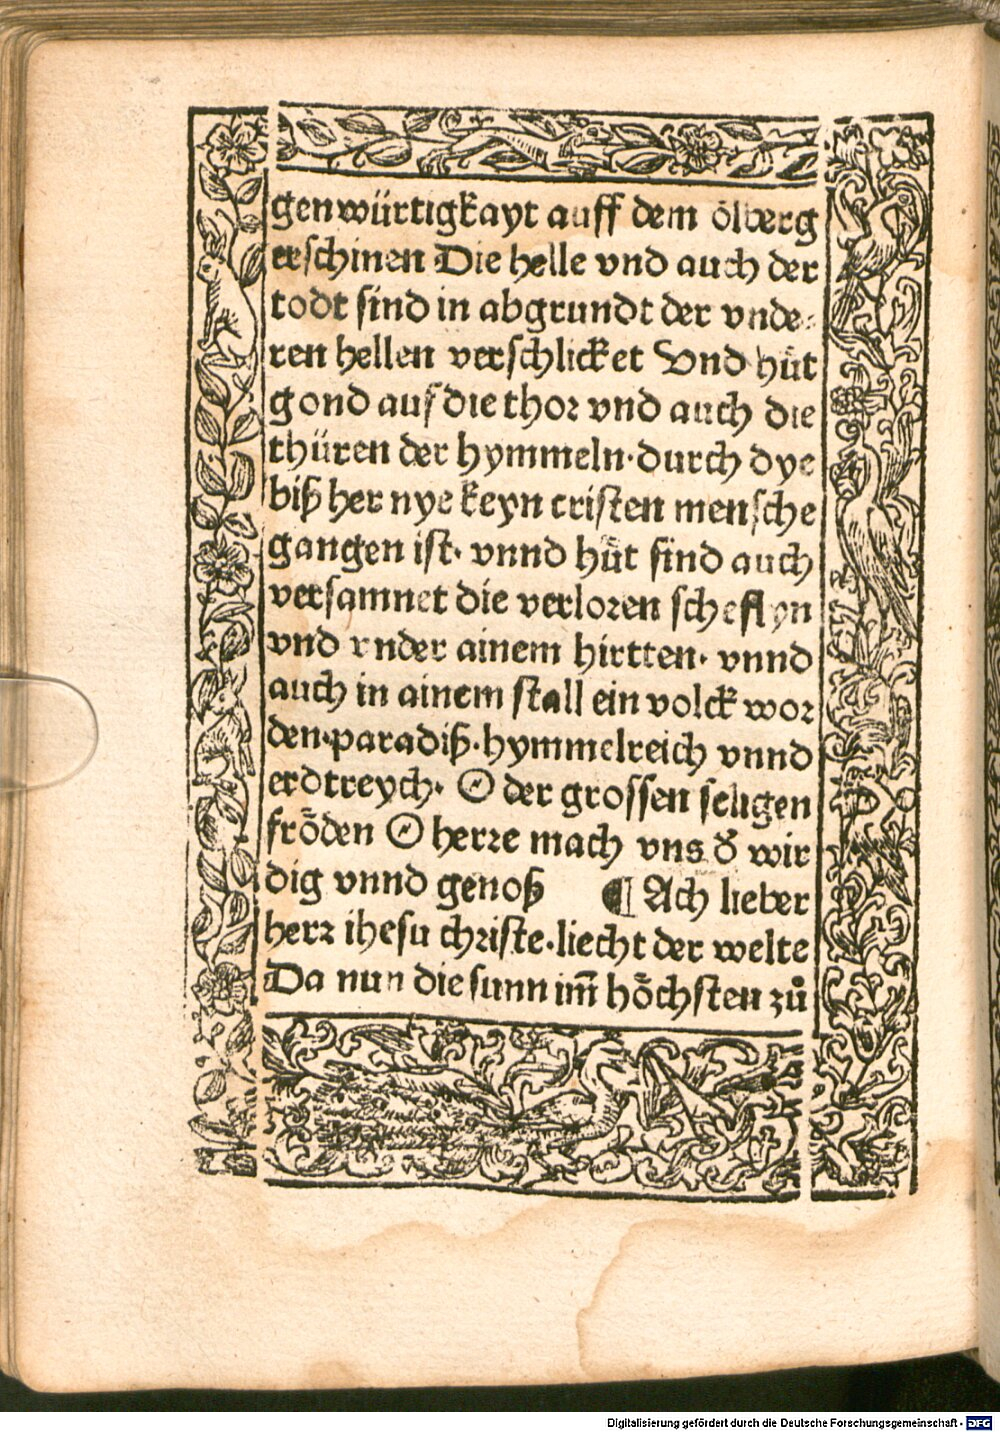 genwürtigkayt auff dem ölberg
erschinen Die helle vnd auch der
todt sind in abgrundt der vnde⸗
ren hellen verschlicket Vnd hüt
gond auf die thor vnd auch die
thüren der hymmeln·durch dye
biß her nye keyn cristen mensche
gangen ist· vnnd hüt sind auch
versamnet die verloren scheflyn
vnd vnder ainem hirtten· vnnd
auch in ainem stall ein volck wor
den·paradiß·hymmelreich vnnd
erdtreych· O der grossen seligen
fröden O herre mach vns d̕ wir
dig vnnd genoß ¶ Ach lieber
herr ihesu christe·liecht der welte
Da nun die sunn im̄ höchsten zů
Digitalisierung gefördert durch die Deutsche Forschungsgemeinschaft - DFG